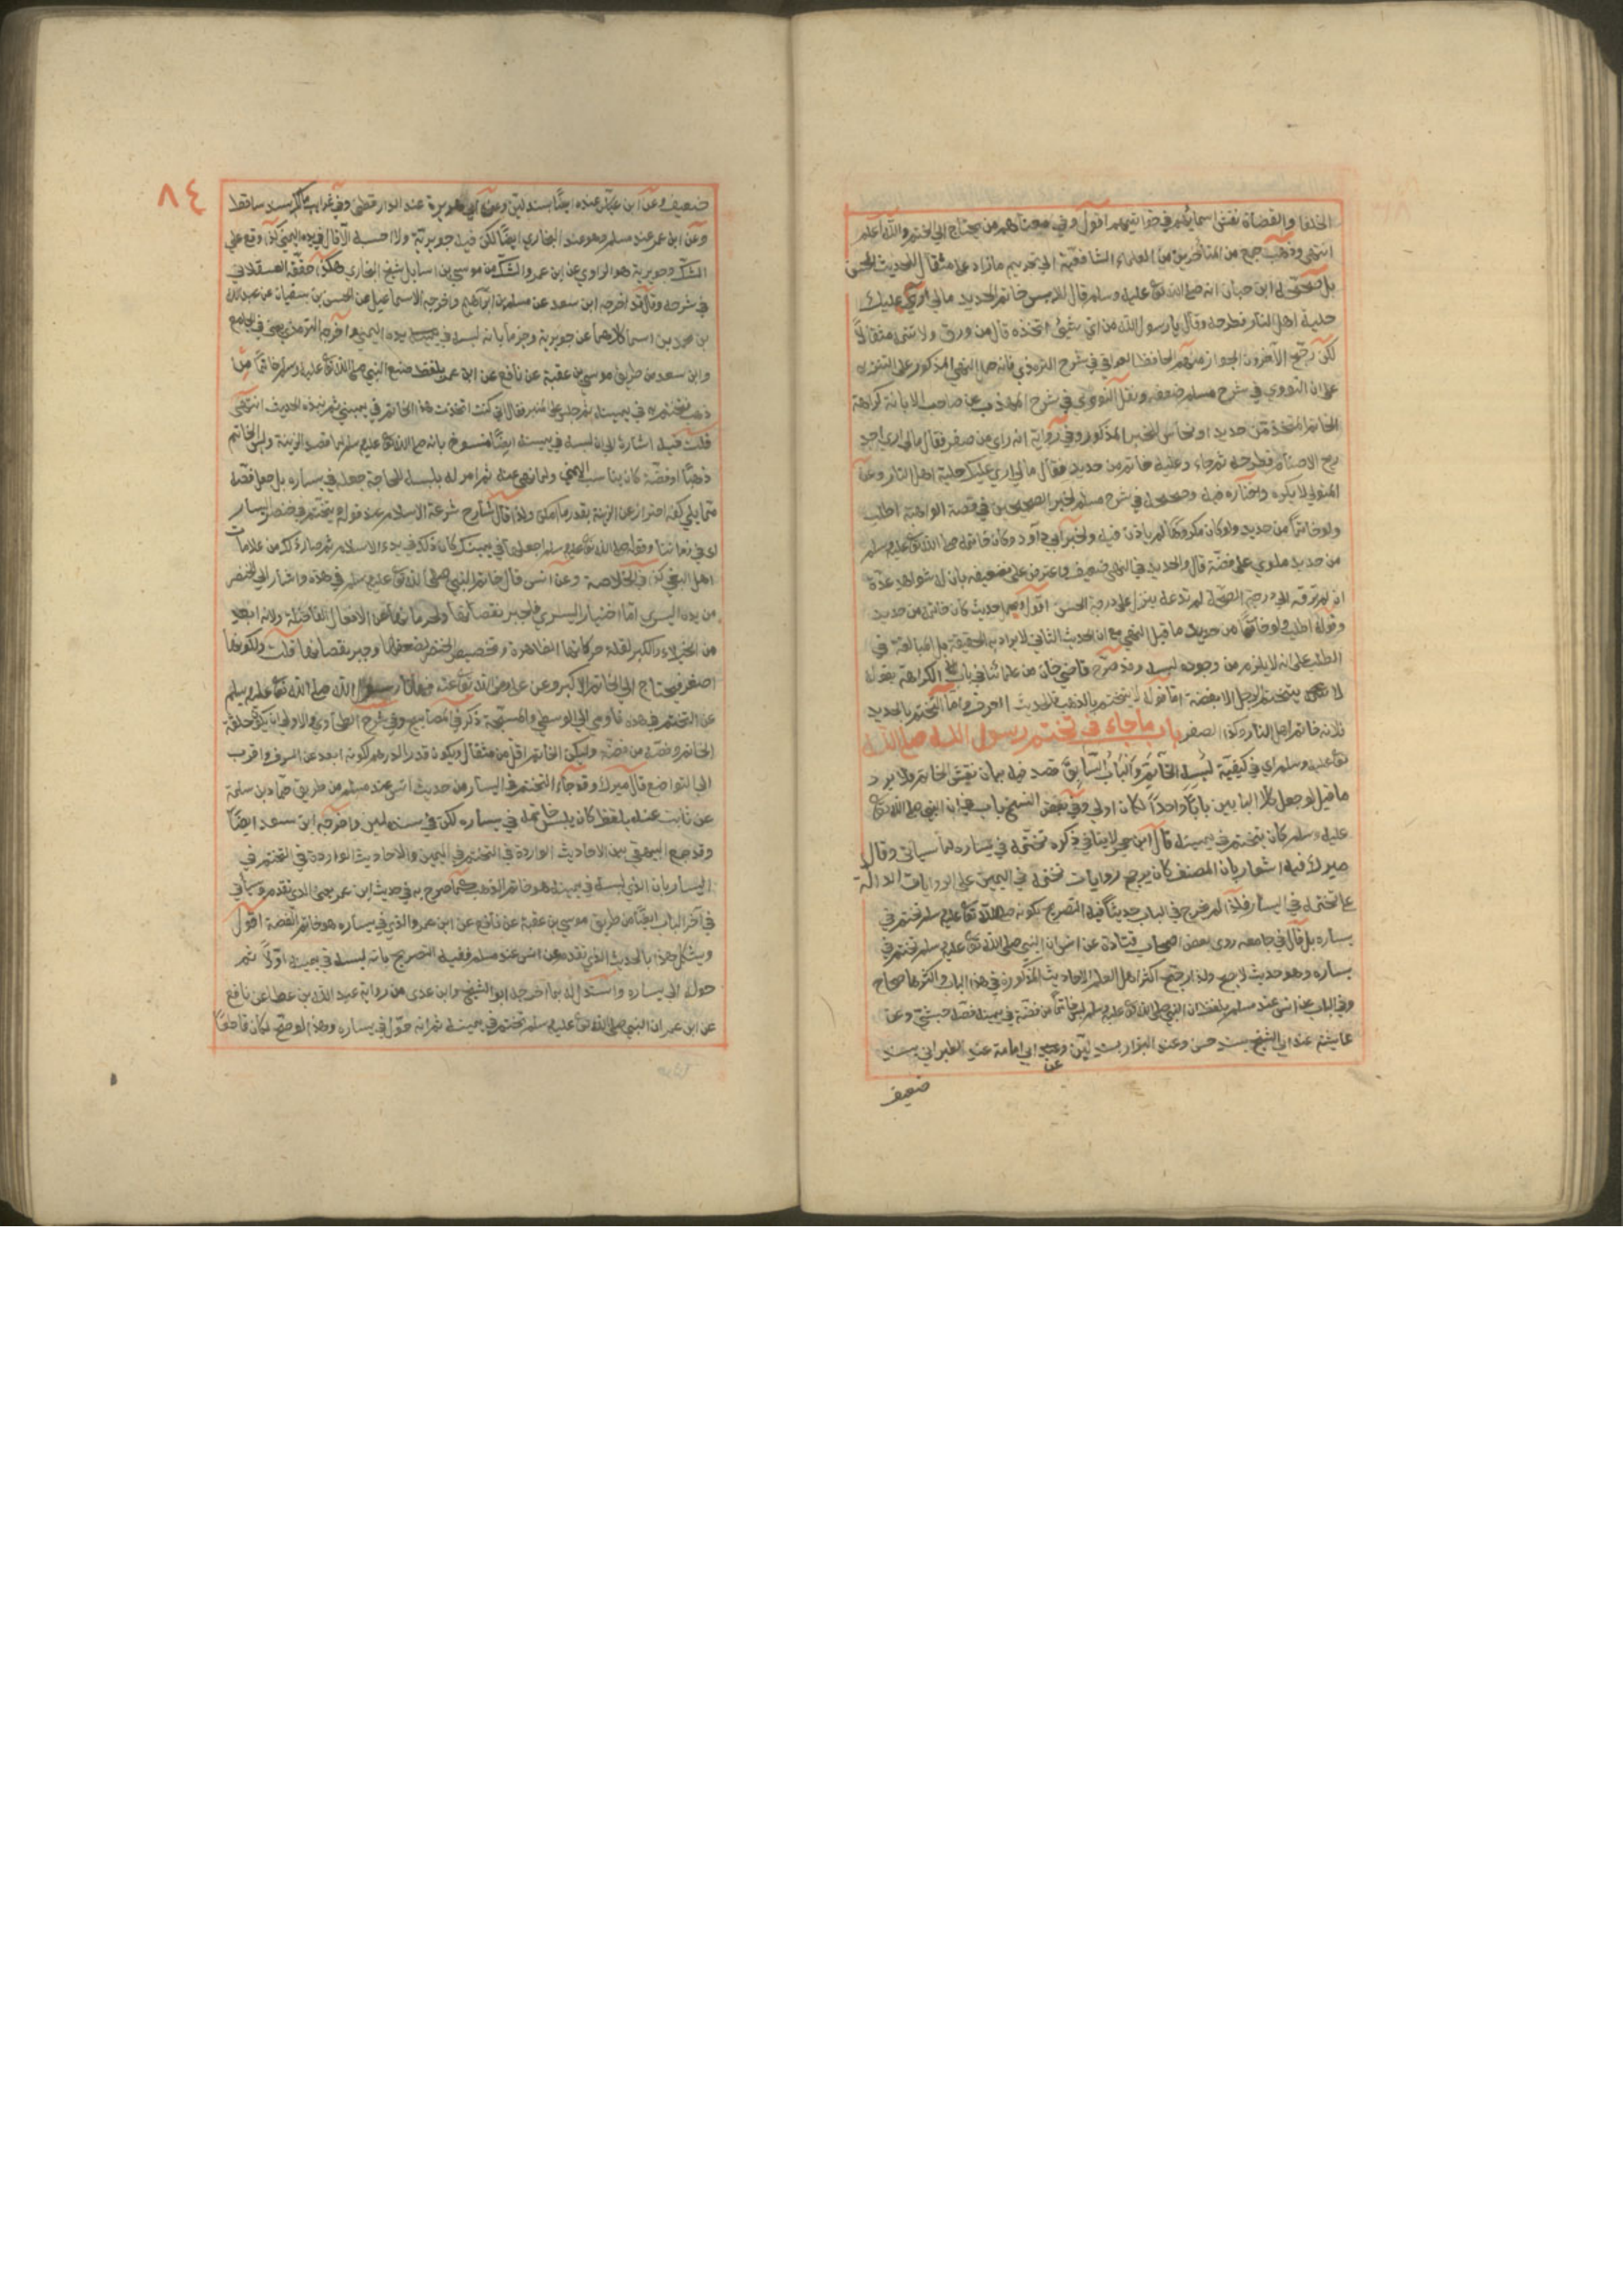 الخلفا والقضاة نقش اسمائهم في خواتيمهم اقول وفي معناهم من يحتاج الي الختم والله اعلم
انتهي وذهب جمع من المتأخرين من العلماء الشافعية الي تحريم ما زاد علي مثقال للحديث الحسن
بل صححه ابن حبان انه صلي الله تع عليه وسلم قال للابس خاتم الحديد مالي اري عليك
حلية اهل النار فطرحه وقال يا رسول الله من اي شيئ اتخذه قال من ورق ولا تتمه مثقالاً
لكن رجح الآخرون الجواز منهم الحافظ العراقي في شرح الترمذي فانه حمل النهي المذكور علي التنزيه
علي ان النووي في شرح مسلم ضعفه ونقل النووي في شرح المهذب عن صاحب الابانة كراهة
الخاتم المتخذ من حديد او نحاس للخبر المذكور وفي رواية انه راي من صفر فقال مالي اري اجد
ريح الاصنام فطرحه ثم جاء وعليه خاتم من حديد فقال مالي اري عليك حلية اهل النار وعن
المتولي لا يكره واختاره فيه وصححه في شرح مسلم لخبر الصحيحين في قصة الواهبة اطلب
ولو خاتماً من حديد ولو كان مكروهًا لم ياذن فيه ولخبر ابي داود وكان خاتمه صلي الله تع عليه وسلم
من حديد ملوي علي فضة قال والحديد في النهي ضعيف واعترض علي تضعيفه بان له شواهد عدة
ان لم ترقه الي درجة الصحة لم تدعه ينزل عن درجة الحسن اقول حديث كان خاتمه من حديد
وقوله اطلب ولو خاتمًا من حديد ما قبل النهي مع ان الحديث الثاني لا يراد به الحقيقة بل المبالغة في
الطلب علي انه لا يلزم من وجوده لبسه وقد صرح قاضي خان من علمائنا في باب الكراهة بقوله
لا يتختم الرجل الا بفضة اما قوله لا يتختم بالذهب فللحديث المعروف واما التختم بالحديد
فلانه خاتم اهل النار وكذا الصفر باب ما جاء في تختم رسول الله صلي الله
تع عليه وسلم اي في كيفية لبس الخاتم والباب السابق قصد فيه بيان نقش الخاتم ولا يرد
ما قيل لو جعل كلا البابين باباً واحداً لكان اولي وفي بعض النسخ باب في ان النبي صلي الله تع
عليه وسلم كان يتختم في يمينه قال ابن حجر لا ينافي ذكره تختمه في يساره لما سياتي وقال
ميرك فيه اشعار بان المصنف كان يرجح روايات تختمه في اليمين علي الروايات الدالة
علي تختمه في اليسار فلذا لم يخرج في الباب حديثاً فيه التصريح بكونه صلي الله تع عليه وسلم تختم في
يساره بل قال في جامعه روي بعض اصحاب قتادة عن انس ان النبي صلي الله تع عليه وسلم تختم في
يساره وهو حديث لا يصح ولذا رجح اكثر اهل العلم الاحاديث المذكورة في هذا الباب واكثرها صحاح
وفي الباب عن انس عند مسلم بلفظ ان النبي صلي الله تع عليه وسلم لبس خاتماً من فضة في يمينه فصه حبشي وعن
عايشة عند ابي الشيخ بسند حسن وعند البزار بسند لين وعن ابي امامة عند الطبراني بسند
ضعيف
٨٤
ضعيف وعن ابن عباس عنده ايضًا بسند لين وعن ابي هريرة عند الدارقطني وفي غرايب مالك بسند ساقط
وعن ابن عمر عند مسلم وهو عند البخاري ايضًا لكن فيه جويرية ولا احسبه الا قال في يده اليمني كذا وقع علي
الشك وجويرية هو الراوي عن ابن عمر والشك من موسي بن اسمايل شيخ البخاري هكذا حققه العسقلاني
في شرحه وقال قد اخرجه ابن سعد عن مسلم بن ابراهيم واخرجه الاسماعيل من الحسن بن سفيان عن عبدالله
بن محمد بن اسما كلاهما عن جويرية وجزما بانه لبسه في يده اليمني واخرجه الترمذي يعني في الجامع
وابن سعد من طريق موسي بن عقبة عن نافع عن ابن عمر بلفظ صنع النبي صلي الله تع عليه وسلم خاتماً من
ذهب فتختم به في يمينه ثم جلس علي المنبر فقال اني كنت اتخذت هذا الخاتم في يميني ثم نبذه الحديث انتهي
قلت فيه اشارة الي ان لبسه في يمينه ايضًا منسوخ بانه صلي الله تع عليه وسلم لما قصد الزينة ولبس الخاتم
ذهبًا او فضة كان يناسب اليمني ولما نهي عنه ثم امر له بلبسه للحاجة جعله في يساره بل جعل فصه
مما يلي كفه احتراز عن الزينة بقدر ما امكن ولذا قال شارح شرعة الاسلام عند قوله ويتختم في خنصر يساره
اي في زماننا وقوله صلي الله تع عليه وسلم اجعلها في يمينك كان ذلك في بدء الاسلام ثم صار ذلك من علامات
اهل البغي كذا في الخلاصة وعن انس قال خاتم النبي صلي الله تع عليه وسلم في هذه واشار الي الخنصر
من يده اليسري اما اختيار اليسري فلجبر نقصانها ولحرمانها عن الافعال الفاضلة ولانه ابعد
من الخيلاء والكبر لقلة حركاتها الظاهرة وتخصيص الخنصر لضعفها وجبر نقصانها قلت ولكونها
اصغر فيحتاج الي الخاتم الاكبر وعن علي رضي الله تع عنه نهانا رسول الله صلي الله تع عليه وسلم
عن التختم في هذه فاومي الي الوسطي والمسبحة ذكره في المصابيح وفي شرح الطحاوي والاولي ان يكون حلقة
الخاتم وفصه من فضة وليكن الخاتم اقل من مثقال ويكون قدر الدرهم لكونه ابعد عن السرف واقرب
الي التواضع قال ميرك وقد جاء التختم في اليسار من حديث انس عند مسلم من طريق حماد بن سلمة
عن ثابت عنه بلفظ كان يلبس خاتمه في يساره لكن في سنده لين واخرجه ابن سعد ايضًا
وقد جمع البيهقي بين الاحاديث الواردة في التختم في اليمين والاحاديث الواردة في التختم في
اليسار بان الذي لبسه في يمينه هو خاتم الذهب كما صرح به في حديث ابن عمر يعني الذي تقدم وسياتي
في آخر الباب ايضًا من طريق موسي بن عقبة عن نافع عن ابن عمر والذي في يساره هو خاتم الفضة اقول
ويشكل هذا بالحديث الذي تقدم عن انس عند مسلم ففيه التصريح بانه لبسه في يمينه اولاً ثم
حوله الي يساره واستدل له بما اخرجه ابو الشيخ وابن عدي من رواية عبد الله بن عطا عن نافع
عن ابن عمر ان النبي صلي الله تع عليه وسلم تختم في يمينه ثم انه حوله في يساره وهذا لو صح لكان قاطعًا